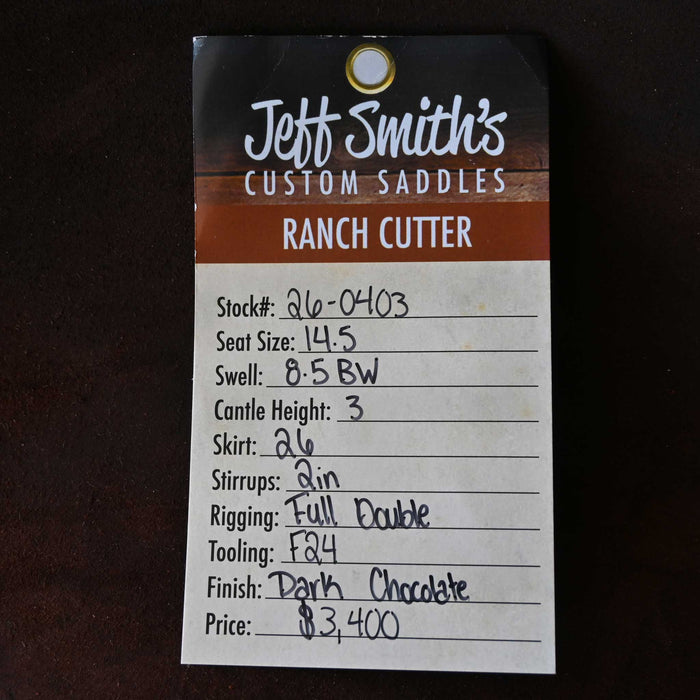 Jeff Smith's
CUSTOM SADDLES
RANCH CUTTER
Stock#: 26-0403
Seat Size: 14.5
Swell: 8.5 BW
Cantle Height: 3
Skirt: 26
Stirrups: 2in
Rigging: Full Double
Tooling: F24
Finish: Dark Chocolate
Price: $3,400